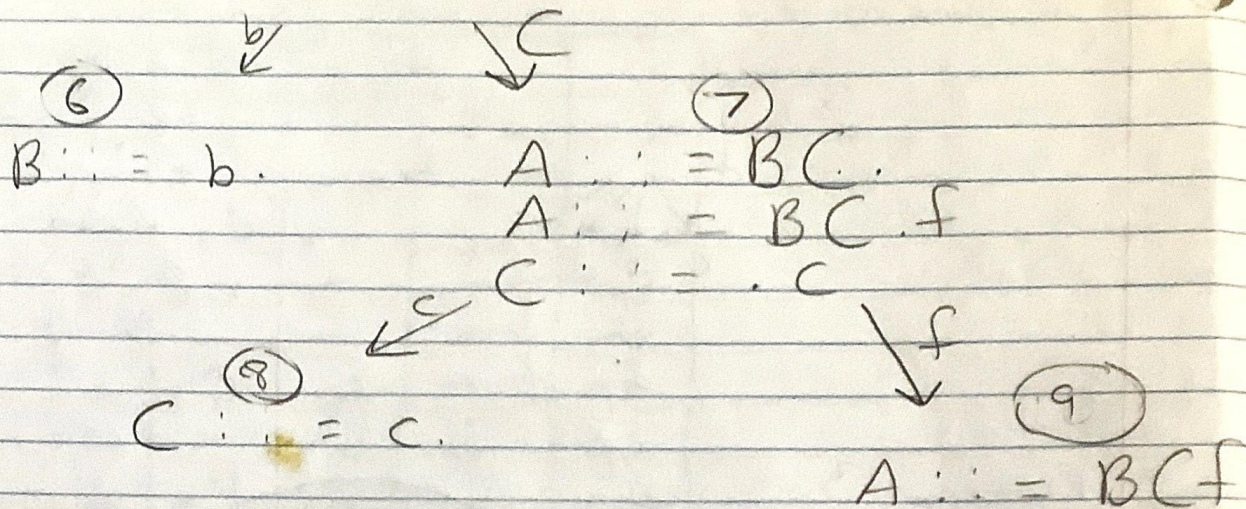 b C
6 7
B ::= b. A ::= BC.
A ::= BC.f
C ::= .c
c f
8 9
C ::= c.
A ::= BCf